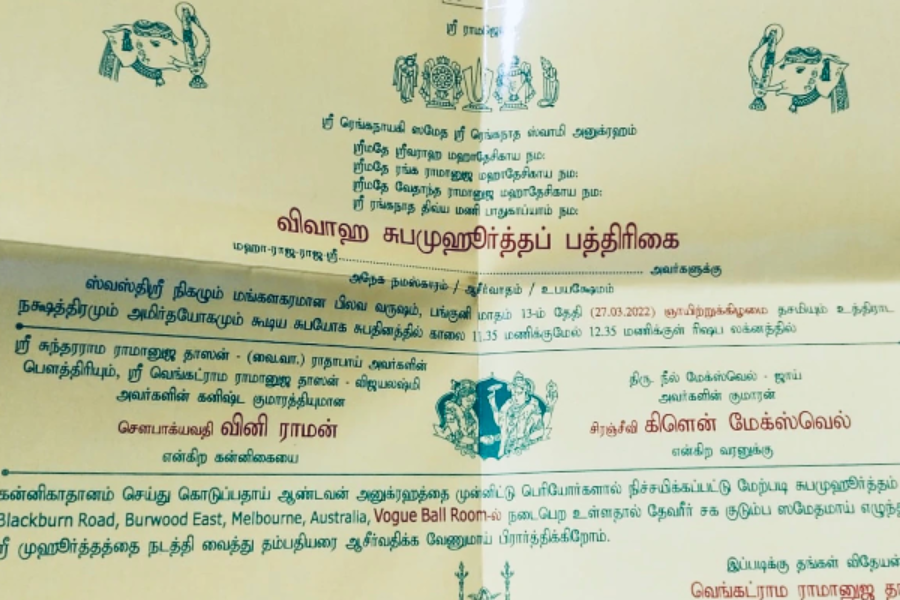 ஸ்ரீ ராமஜெய
ஸ்ரீ ரெங்கநாயகி ஸமேத ஸ்ரீ ரெங்கநாத ஸ்வாமி அனுக்ரஹம்
ஸ்ரீமதே ஸ்ரீவராஹ மஹாதேசிகாய நம:
ஸ்ரீமதே ரங்க ராமானுஜ மஹாதேசிகாய நம:
ஸ்ரீமதே வேதாந்த ராமானுஜ மஹாதேசிகாய நம:
ஸ்ரீ ரங்கநாத திவ்ய மணி பாதுகாப்யாம் நம:
விவாஹ சுபமுஹூர்த்தப் பத்திரிகை
மஹா-ராஜ-ராஜ-ஸ்ரீ.......................................................... அவர்களுக்கு
அநேக நமஸ்காரம் / ஆசீர்வாதம் / உபயக்ஷேமம்
ஸ்வஸ்திஸ்ரீ நிகழும் மங்களகரமான பிலவ வருஷம், பங்குனி மாதம் 13-ம் தேதி (27.03.2022) ஞாயிற்றுக்கிழமை தசமியும் உத்திராட
நக்ஷத்திரமும் அமிர்தயோகமும் கூடிய சுபயோக சுபதினத்தில் காலை 11.35 மணிக்குமேல் 12.35 மணிக்குள் ரிஷப லக்னத்தில்
ஸ்ரீ சுந்தரராம ராமானுஜ தாஸன் - (வை.வா.) ராதாபாய் அவர்களின்
பௌத்திரியும், ஸ்ரீ வெங்கட்ராம ராமானுஜ தாஸன் - விஜயலஷ்மி
அவர்களின் கனிஷ்ட குமாரத்தியுமான
சௌபாக்யவதி வினி ராமன்
என்கிற கன்னிகையை
திரு. நீல் மேக்ஸ்வெல் - ஜாய்
அவர்களின் குமாரன்
சிரஞ்சீவி கிளென் மேக்ஸ்வெல்
என்கிற வரனுக்கு
கன்னிகாதானம் செய்து கொடுப்பதாய் ஆண்டவன் அனுக்ரஹத்தை முன்னிட்டு பெரியோர்களால் நிச்சயிக்கப்பட்டு மேற்படி சுபமுஹூர்த்தம்
Blackburn Road, Burwood East, Melbourne, Australia, Vogue Ball Room-ல் நடைபெற உள்ளதால் தேவரீர் சக குடும்ப ஸமேதமாய் எழுந்த
ஸ்ரீ முஹூர்த்தத்தை நடத்தி வைத்து தம்பதியரை ஆசீர்வதிக்க வேணுமாய் பிரார்த்திக்கிறோம்.
இப்படிக்கு தங்கள் விதேயன்
வெங்கட்ராம ராமானுஜ தா